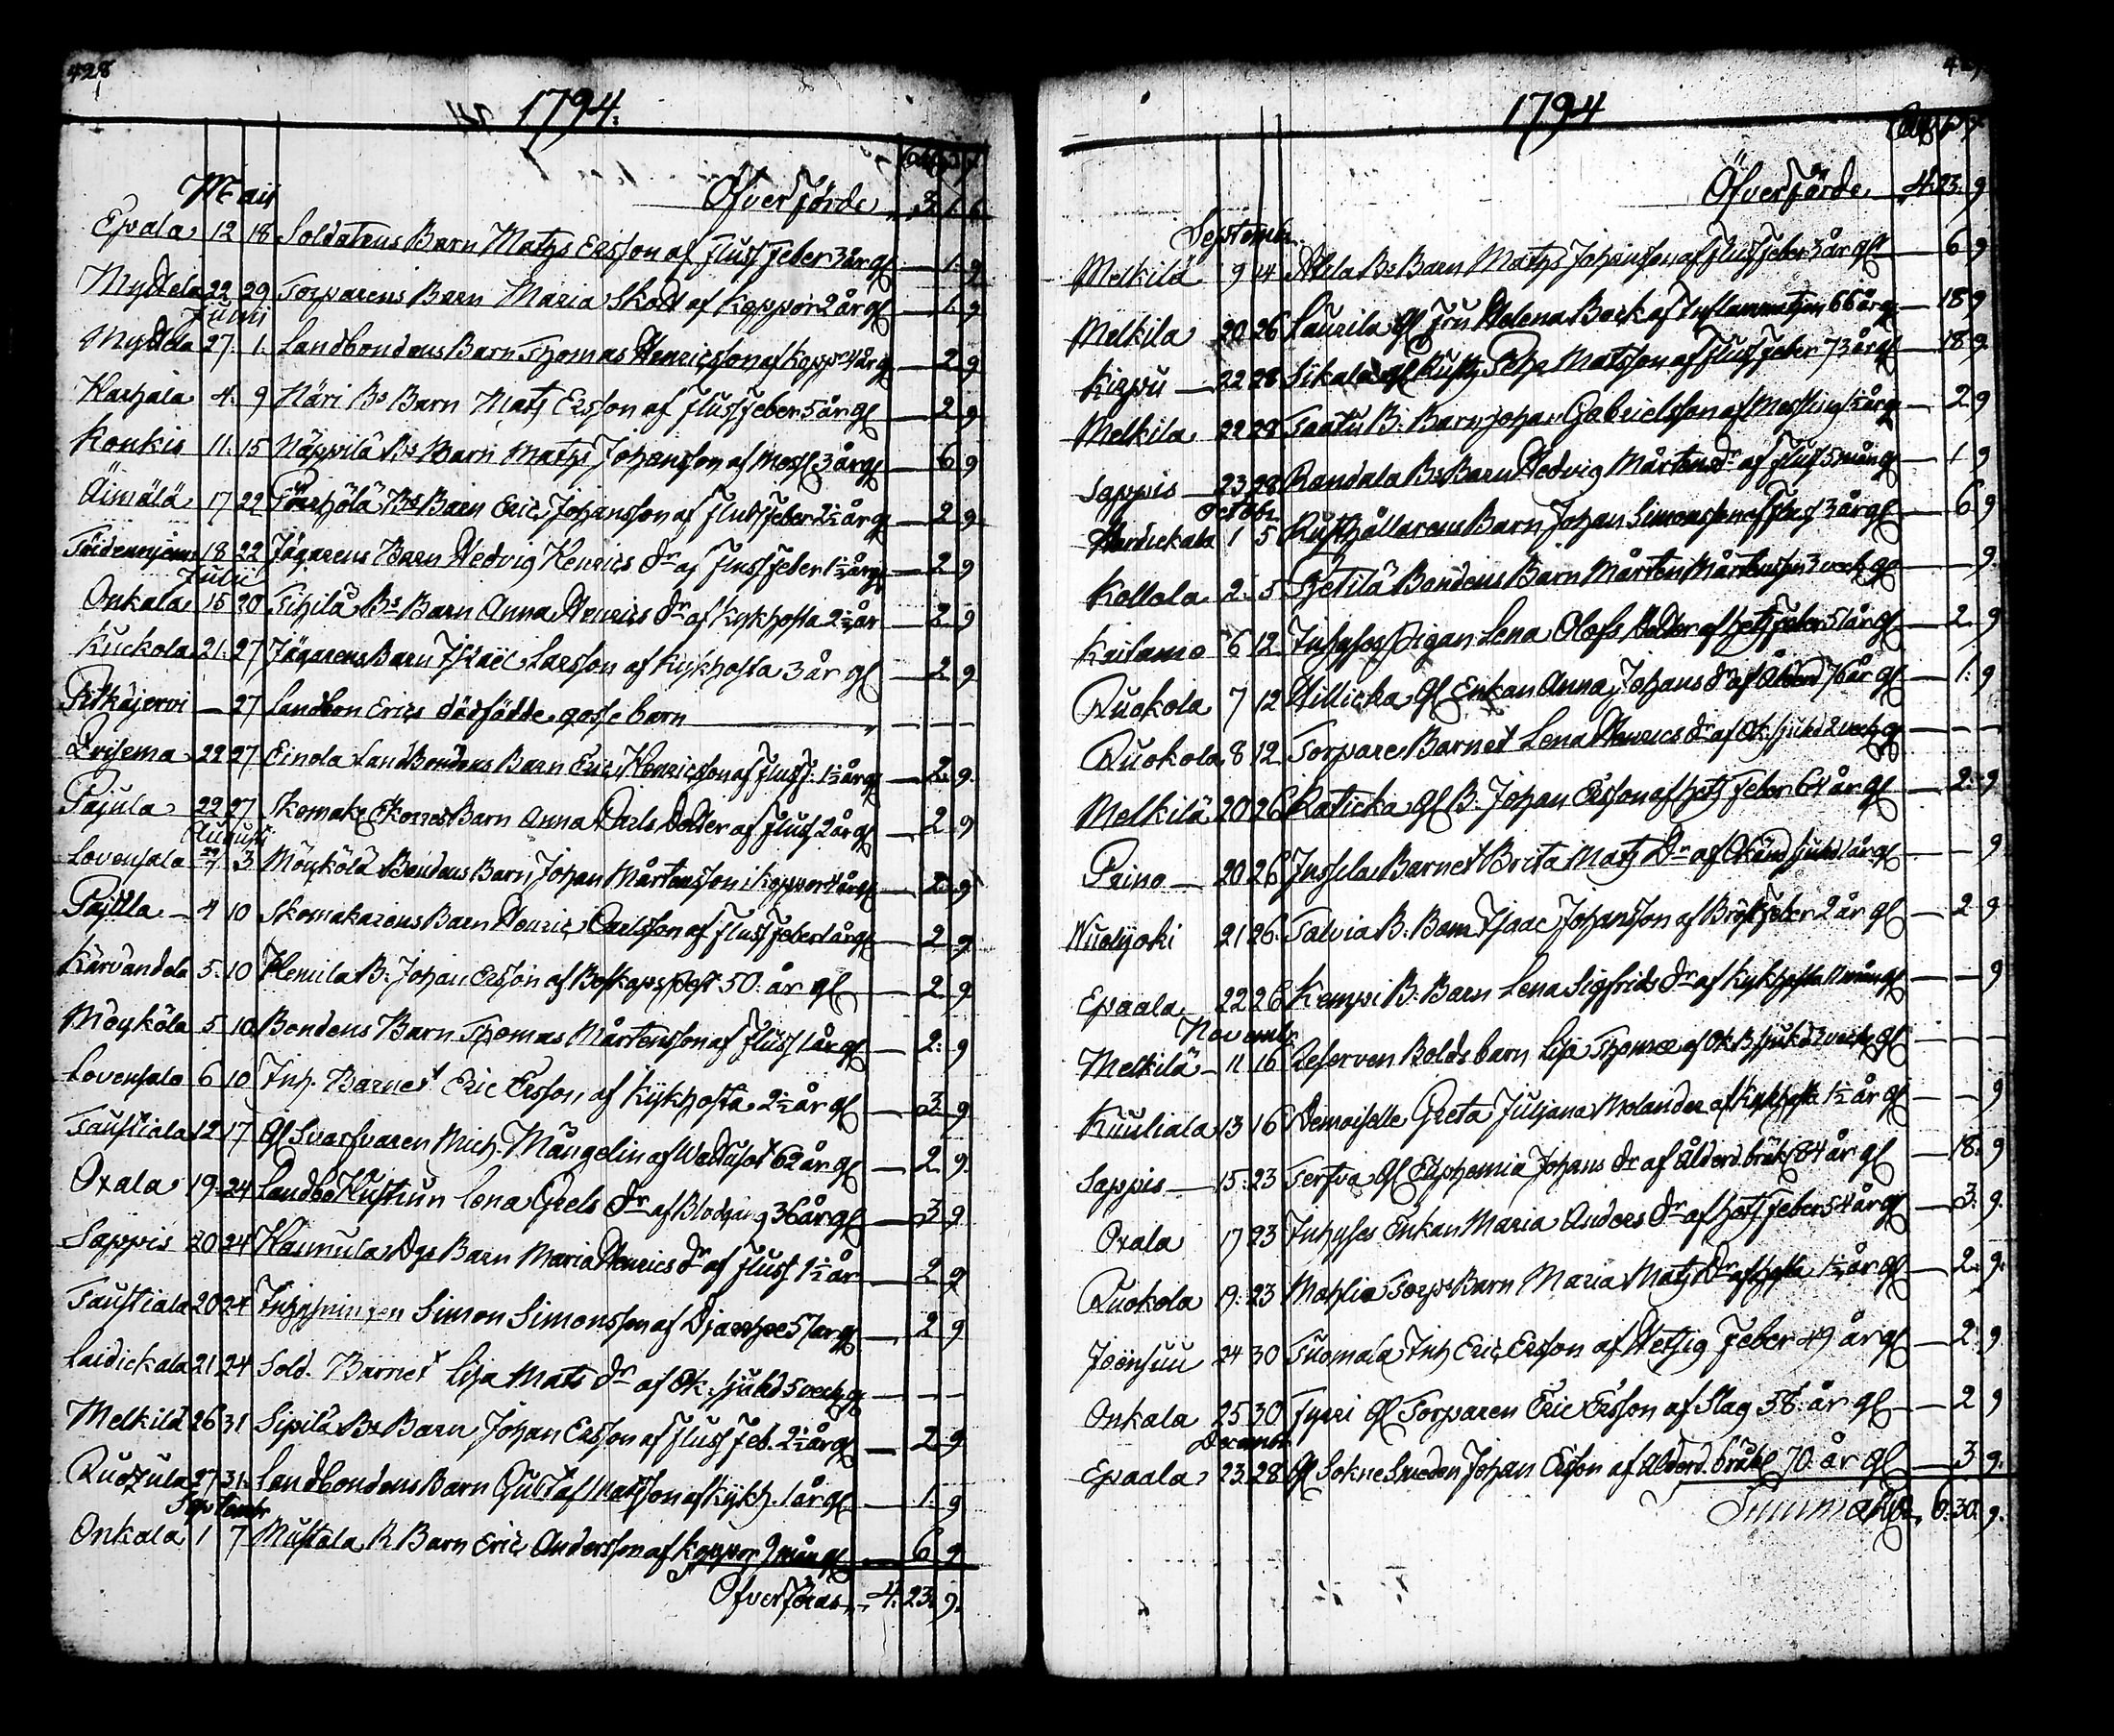 428
1794.
Öfverförde 3. 1. 6
Maii
Epala 12 18 Soldatens Barn Maths Ersson af Flussfeber 3 år gl — 1. 9
22 29 Torparens Barn Maria Skott af Koppor 2 år gl — 1. 9
Junii
27. 1. Landbondens Barn Thomas Henricsson af Kopp 4 år g — 2 9
Karhala 4. 9 Näri Bs Barn Mats Ersson af Flussfeber 5 år gl — 2 9
Konkis 11. 15 Näppilä Bs Barn Maths Johansson af Messl 3 år gl — 6 9
Äimälä 17 22 Pärhölä Bs Barn Eric Johansson af Flussfeber 2½ år g — 2 9
18. 22 Jägarens Barn Hedvig Henrics dr af Flussfeber 1½ år g — 2 9
Julii
Onkala 15 20 Barn Anna Henrics dr af Kykhosta 2½ år — 2 9
Kuckola 21. 27 Jägarens Barn Israël Larsson af Kykhosta 3 år gl — 2 9
Pitkäjervi — 27 Landbon Erics dödfödde gosse barn — — —
Prisema 22 27 Einola Landbondens Barn Eric Henricsson af Fluss. 1½ år g — 2. 9.
Pajula 22 27 Skomak Ekorres Barn Anna Carls Dotter af Fluss 2 år gl — 2 9
Augusti
Lovensala 29/7 3 Möyköla Bondens Barn Johan Mårtensson i Koppor år gl — 2 9
Pajula — 4 10 Skomakarens Barn Henric Carlsson af Flussfeber 1 år gl — 2 9
Kärvandela 5. 10 Hemila B. Johan Ersson af Boskapspest 50. år gl — 2. 9
Möyköla 5 10 Bondens Barn Thomas Mårtensson af Fluss 1 år gl — 2. 9
Lovensala 6 10 Inh. Barnet Eric Ersson af Kykhosta 2½ år gl — 3. 9
Taustiala 12 17 Gl Svarfvaren Mich. Mångelin af Wattusot 62 år gl — 2 9.
Oxala 19. 24 Landbo Hustrun Lena Greels dr af Blodgång 36 år gl — 3 9
Sappis 20 24 Kasmula Barn Maria Henrics dr af Fluss 1½ år — 2 9
Taustiala 20 24 Inhysningen Simon Simonsson af Djarrhee 51 år g — 2 9
Laidickala 21 24 Sold. Barnet Lisa Mats dr af Ok. sjukd 5 veck g — — —
Melkilä 26 31 Sipilä Bs Barn Johan Ersson af Fluss feb. 2½ år g — 2 9
27 31. Landbondens Barn Gustaf Matsson af Kykh. 1 år gl — 1. 9
Septembr
Onkala 1 7 Mustala R Barn Eric Andersson af Koppor 9 mån gl — 6 9
Öfverföras — 4. 23. 9.
1794
Öfverförde 4. 23. 9
Septembr
Melkilä 9 14 Bs Barn Maths Johansson af Flussfeber 3 år gl — 6 9
Melkila 20 26 Laurila gl fru Helena Bark af Inflammation 66 år g — 18 9
Kirpu — 22 28 Sikala gl Rusth Pehr Matsson af Flussfeber 73 år gl — 18 9
Melkila 22 28 Taatu B. Barn Johan Gabrielsson af Messling år g — 2 9
Sappis — 23 28 Randala Bs Barn Hedvig Mårtens dr af Fluss 5 mån g — 1 9
Octobr
1 5 Rusthållarens Barn Johan Simonsson af Fluss 3 år gl — 6 9
Kollola 2. 5 Bondens Barn Mårten Mårtensson 3 veck g — 9.
6 12 Inhyses Pigan Lena Olofs Dotter af hets feber 51 år gl — 2. 9
Ruokola 7 12 Hillicka gl Enkan Anna Johans dr af Ålderd 76 år gl — 1. 9
Ruokola 8 12 Torpare Barnet Lena Henrics dr af Ok. sjukd 2 veck g — — —
Melkilä 20 26 Raticka gl B. Johan Ersson af hets feber 64 år gl — 2. 9
Prino — 20 26 Jussila Barnet Brita Mats Dr af Okänd sjukd 1 år gl — 9
Wuolijoki 21 26. Talvia B. Barn Isaac Johansson af Bröstfeber 2 år gl — 2 9
Epaala 22 26 Kempi B. Barn Lena Sigfrids dr af Kykhosta 11 mån gl — 9
Novembr
Melkilä — 11 16 Reserven Bolds barn Lisa af Ok. B sjukd 3 veck gl — — —
Kuuliala 13 16 Demoiselle Greta Juliana Molander af Kykhosta 1½ år gl — 9
Sappis — 15. 23 Tertva gl Euphemia Johans dr af Ålderd. bräkl 84 år gl — 18. 9
Oxala 17 23 Inhyses Enkan Maria Anders dr af hets feber 54 år gl — 3. 9.
Ruokola 19. 23 Mahlia Torp Barn Maria Mats Dr af hosta 1½ år gl — 2. 9.
Joensuu 24 30 Tuomala Inh Eric Ersson af Hetsig Feber 49 år gl — 2. 9
Onkala 25 30 Tyrri gl Torparen Eric Ersson af Slag 58. år gl — 2 9
Decembr
Epaala 23. 28 gl Sokne Smeden Johan Ersson af Ålderd. bräkl 70. år gl — 3 9.
Summa 6. 30. 9.